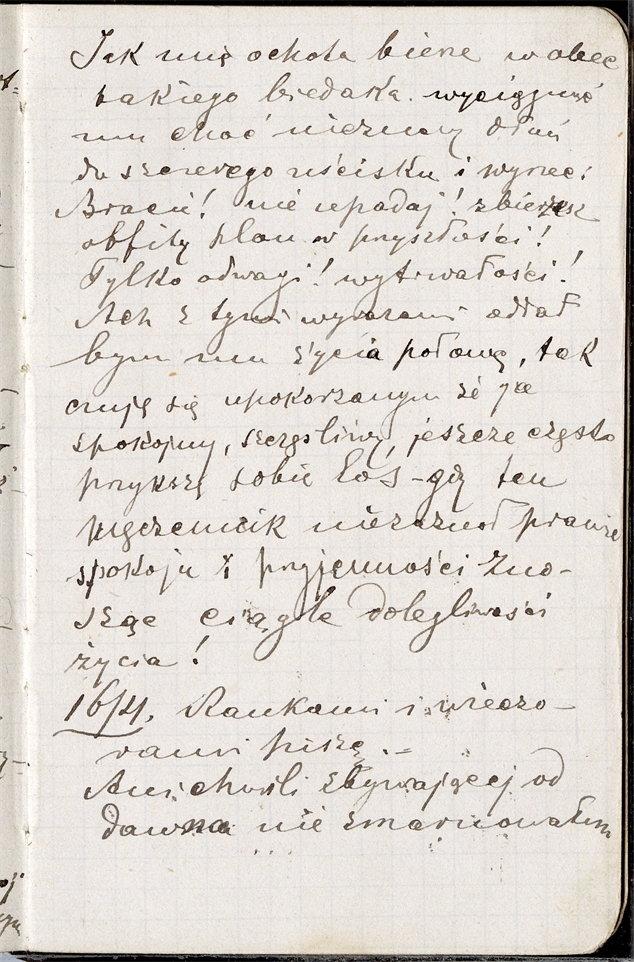 Jak mię ochota bierze wobec
takiego biedaka wyciągnąć
mu choć nieznany dłoń
do szczerego uścisku i wyrzec:
Bracie! nie upadaj! zbierzesz
obfity plon w przyszłości!
Tylko odwagi! wytrwałości!
Ach z tymi wyrazami oddał
bym mu życia połowę, tak
czuję się upokorzonym że ja
spokojny, szczęśliwy, jeszcze często
przykszę sobie los – gdy ten
męczennik niezaznał prawie
spokoju i przyjemności zno-
sząc ciągłe dolegliwości
życia!
16/4. Rankami i wieczo-
rami piszę. –
Ani chwili zbywającej od
dawna nie zmarnowałem